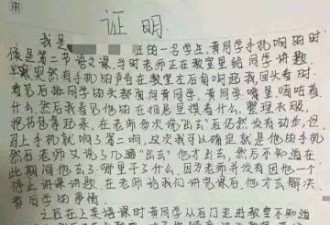 证明
我是 班的一名学生,黄同学手机响的时
候是第二节语文课,当时老师正在教室里给同学讲题
突然有手机的声音在教室左后有响起我回头看时
看见后排同学的头都面向黄同学,黄同学嘴里嘀咕着
什么然后我看见他的在相包里摸着什么,整理衣服,
把书包拿起来,在老师多次说"出去"后仍然没有动作,但
马上手机就响了第二响,这次我可以确定就是他的手机
然后老师又说了几遍"出去"他才出去,然后不知道在
此期间他去了哪里干了什么,因为老师并没有因他一个
停止讲课讲题,在老师给我们讲完课后,他才去解决
黄同学的事情,
之后在上英语课时黄同学从后门走进教室不知道